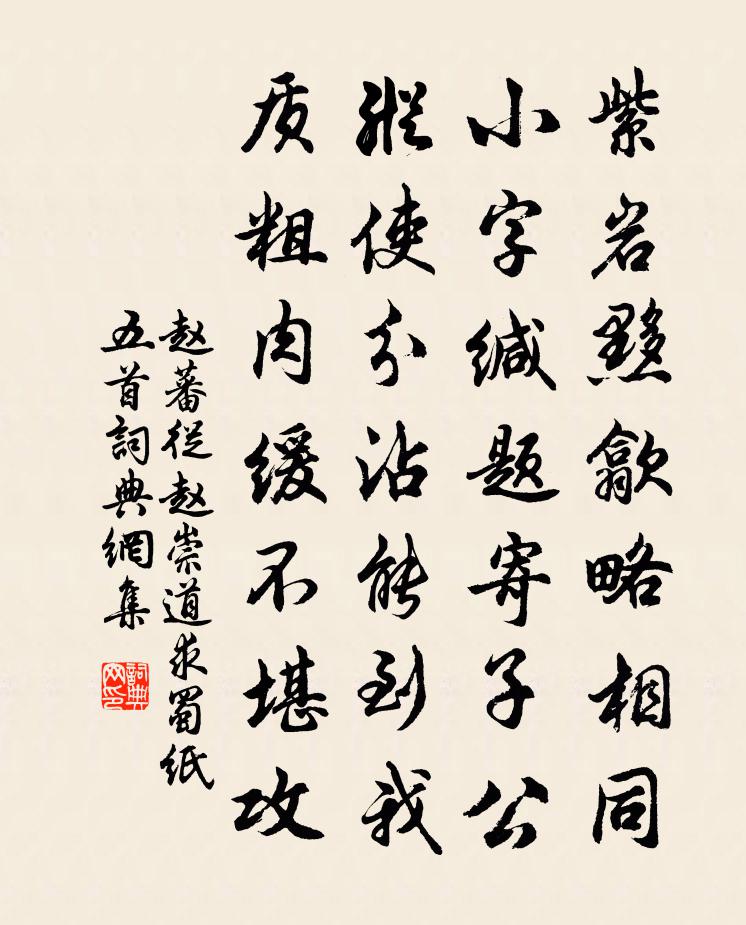 紫岩黟歙略相同
小字缄题寄子公
縱使分沾能到我
质粗肉缓不堪攻
赵蕃從赵崇道求蜀纸
五首詞典網集
詞典
网印